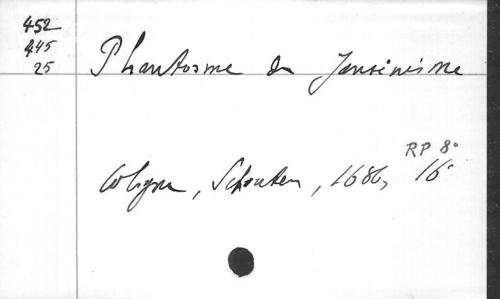 452
445
25
Phantosme du Jansenisme
RP 8°
Cologne, Schouten, 1686, 16°